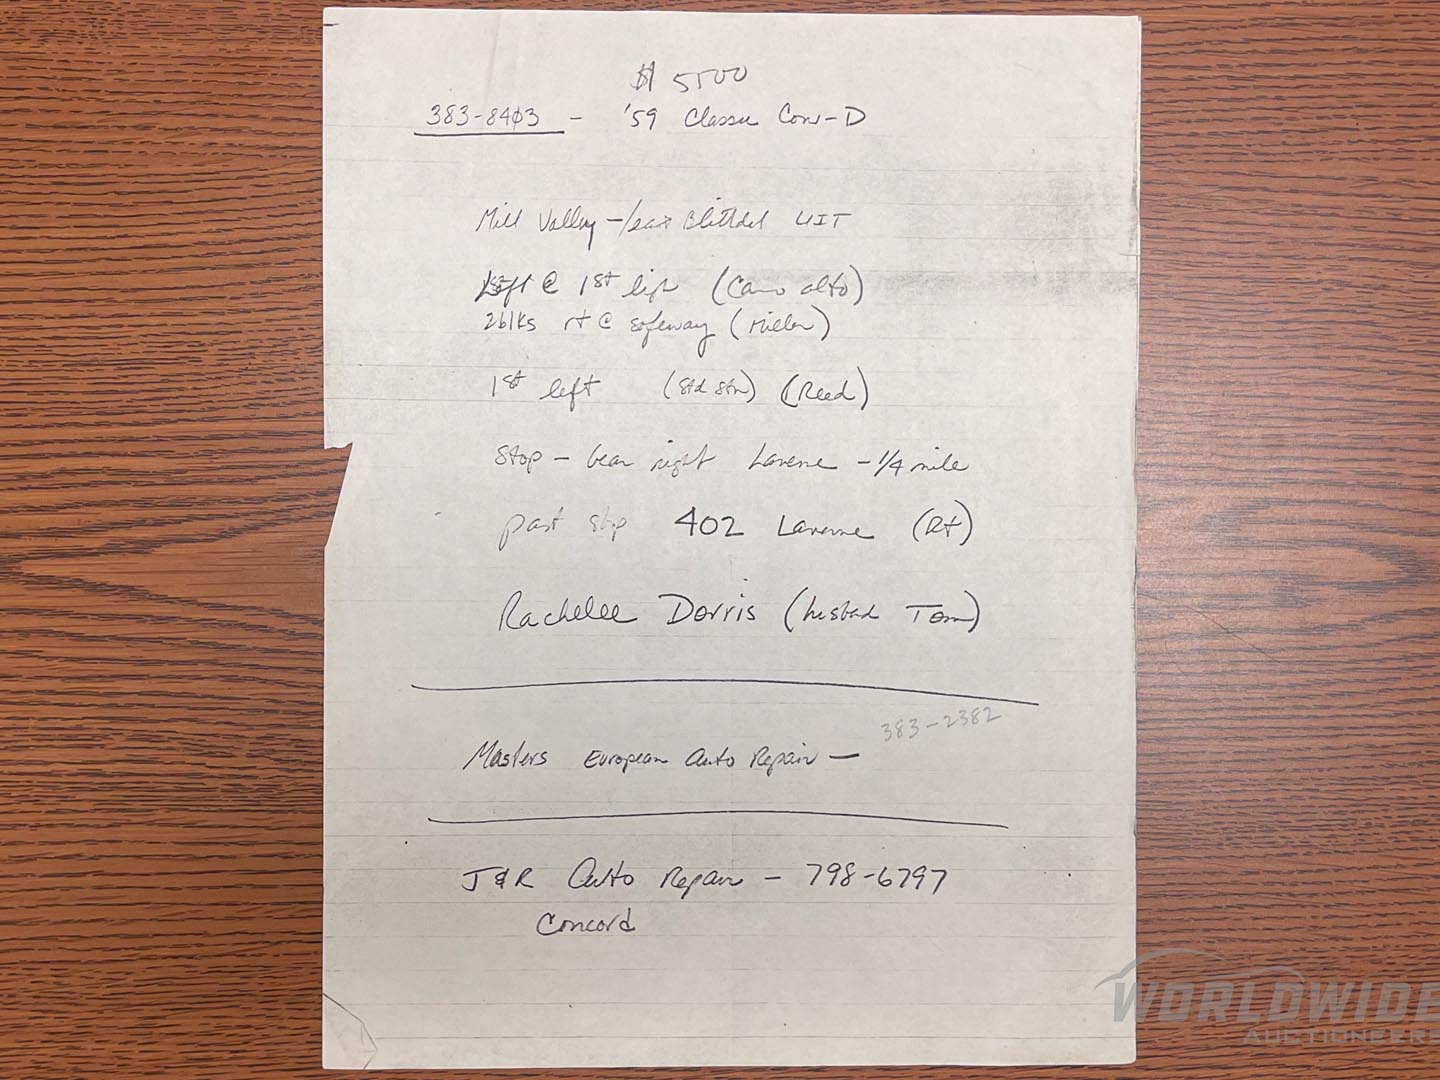 $ 5500
383-8403 - '59 Classic Conv-D
Mill Valley - East Blithdel
Left @ 1st ligh (Camo alto)
2blks rt @ Safeway (Miller)
1st left (Std Stn) (Reed)
Stop - bear right Laverne - 1/4 mile
past stop 402 Laverne (Rt)
Rachelee Dorris (husbad Tom)
383-2382
Masters European Auto Repair -
J & R Auto Repair - 798-6797
Concord
WORLDWIDE
AUCTIONEERS